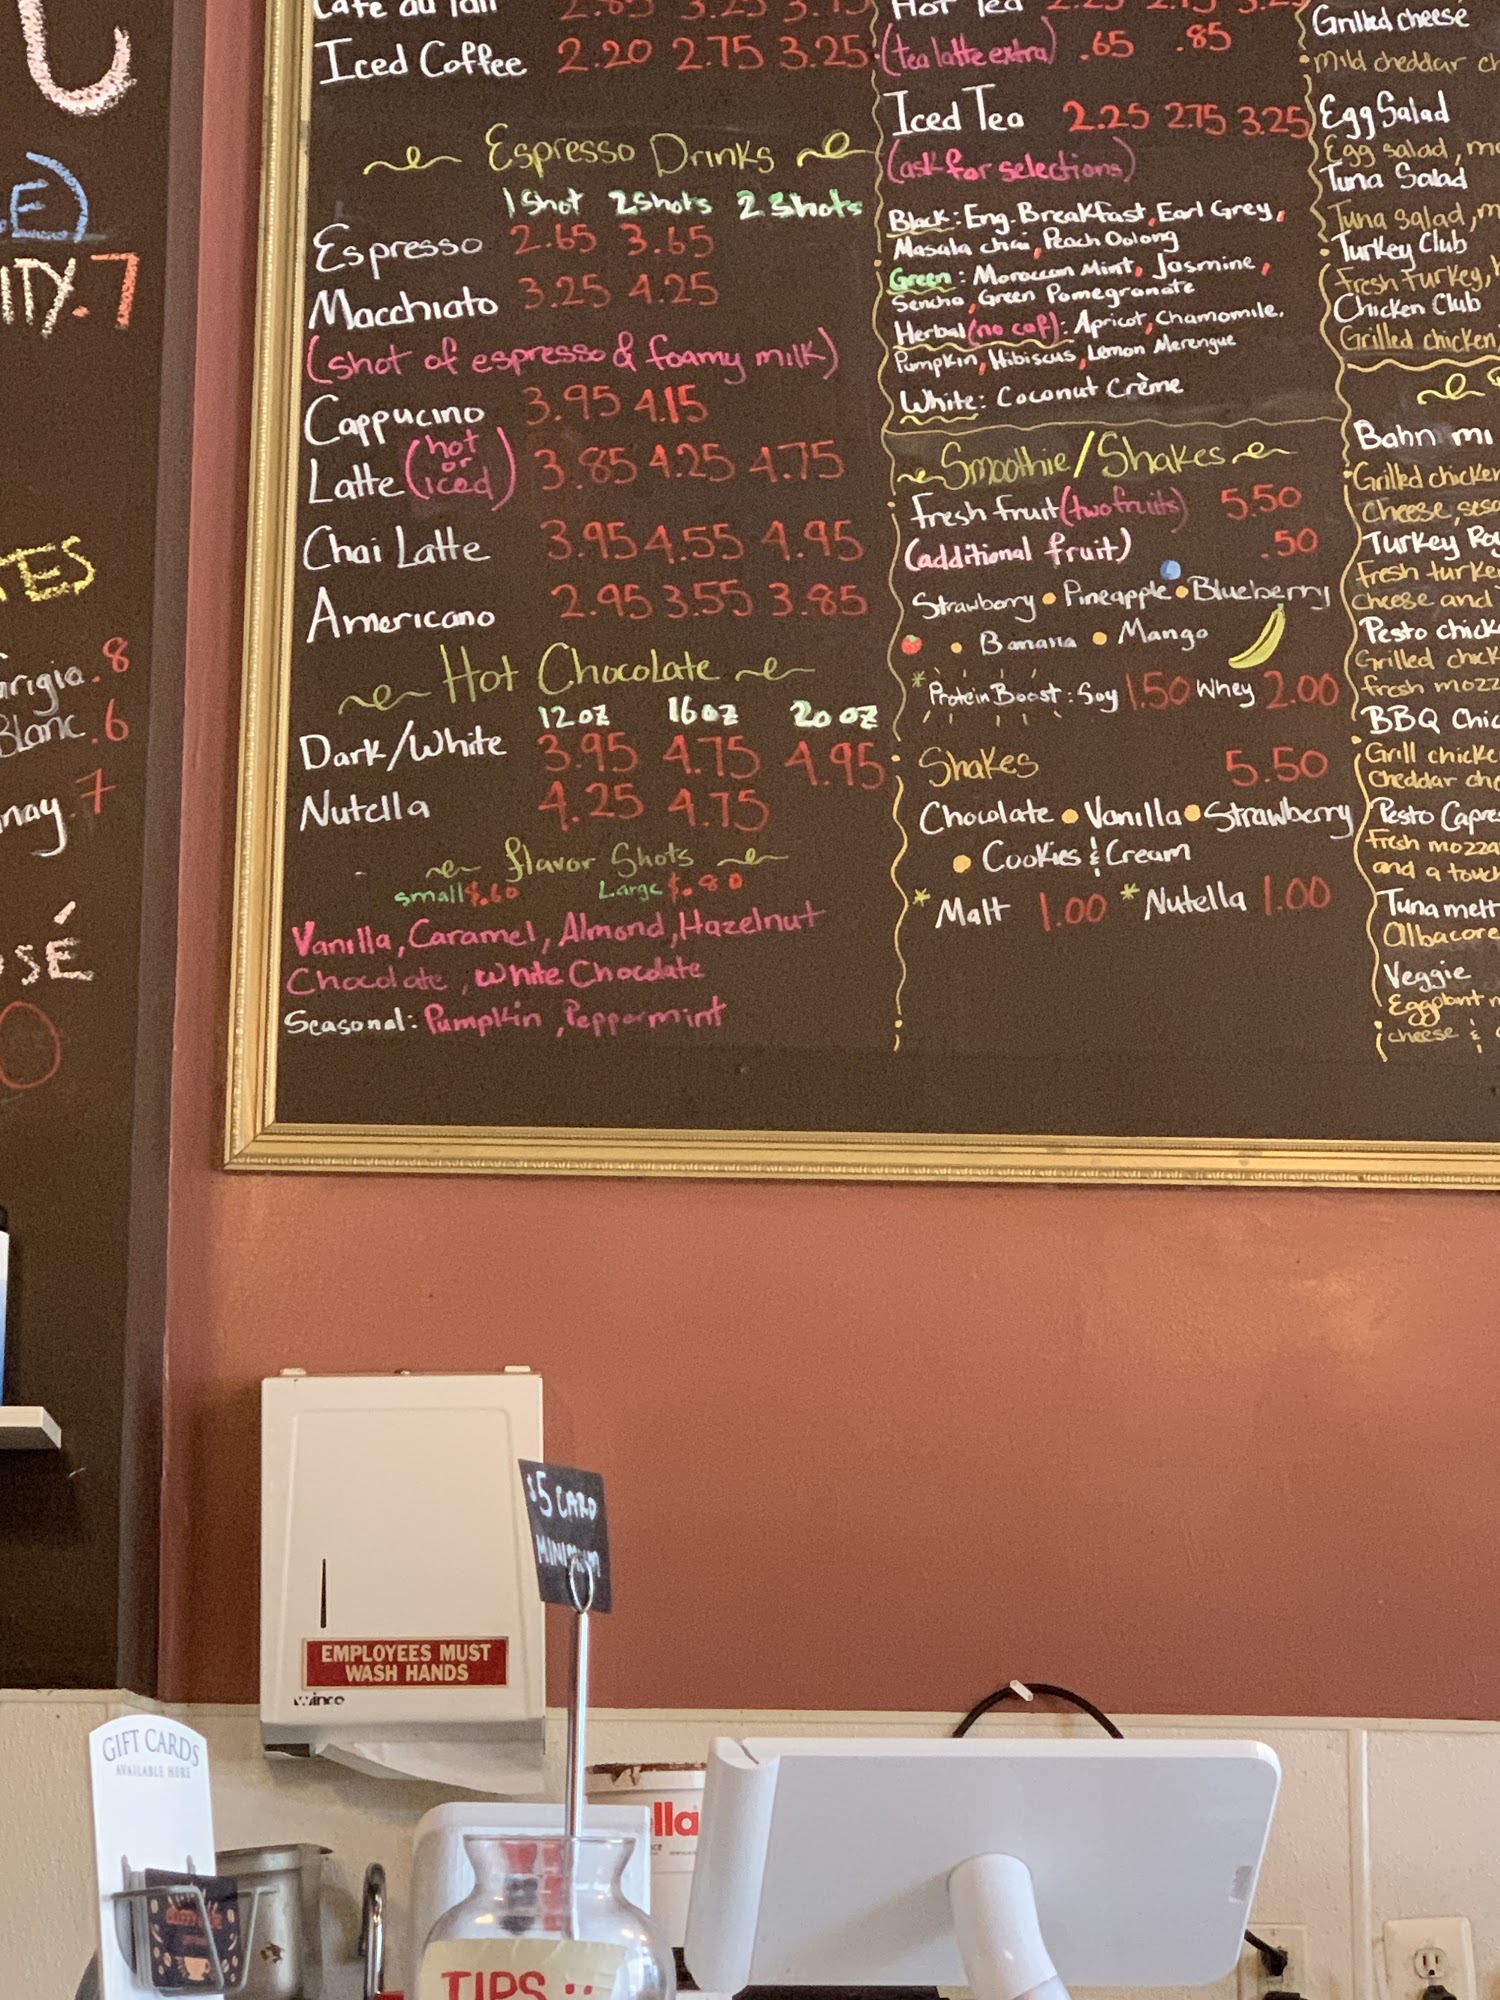 Iced Coffee 2.20 2.75 3.25
Espresso Drinks
1 Shot 2 Shots 2 Shots
Espresso 2.65 3.65
Macchiato 3.25 4.25
(shot of espresso & foamy milk)
Cappucino 3.95 4.15
Latte (hot or iced) 3.85 4.25 4.75
Chai Latte 3.95 4.55 4.95
Americano 2.95 3.55 3.85
Hot Chocolate
12oz 16oz 20oz
Dark/White 3.95 4.75 4.95
Nutella 4.25 4.75
flavor Shots
small $.60 Large $.80
Vanilla, Caramel, Almond, Hazelnut
Chocolate, White Chocolate
Seasonal: Pumpkin, Peppermint
(tea latte extra) .65 .85
Iced Tea 2.25 2.75 3.25
(ask for selections)
Black: Eng. Breakfast, Earl Grey,
Masala chai, Peach Oolong
Green: Moroccan Mint, Jasmine,
Sencha, Green Pomegranate
Herbal (no caf): Apricot, Chamomile,
Pumpkin, Hibiscus, Lemon Merengue
White: Coconut Crème
Smoothie/Shakes
Fresh fruit (two fruits) 5.50
(additional fruit) .50
Strawberry • Pineapple • Blueberry
• Banana • Mango
*Protein Boost: Soy 1.50 Whey 2.00
Shakes 5.50
Chocolate • Vanilla • Strawberry
• Cookies & Cream
*Malt 1.00 *Nutella 1.00
Grilled cheese
Mild cheddar
Egg Salad
Egg salad,
Tuna Salad
Tuna salad,
Turkey Club
Fresh turkey,
Chicken Club
Grilled chicken
Bahn mi
Grilled chicken
cheese,
Turkey
fresh
cheese and
Pesto
Grilled
fresh
BBQ
Grill
cheddar
Pesto
Fresh
and a touch
Tuna melt
Albacore
Veggie
Eggplant
cheese &
ITY. 7
.8
Blanc .6
7
SÉ
$5 CARD
MINIMUM
EMPLOYEES MUST
WASH HANDS
Winco
GIFT CARDS
AVAILABLE HERE
lla
TIPS